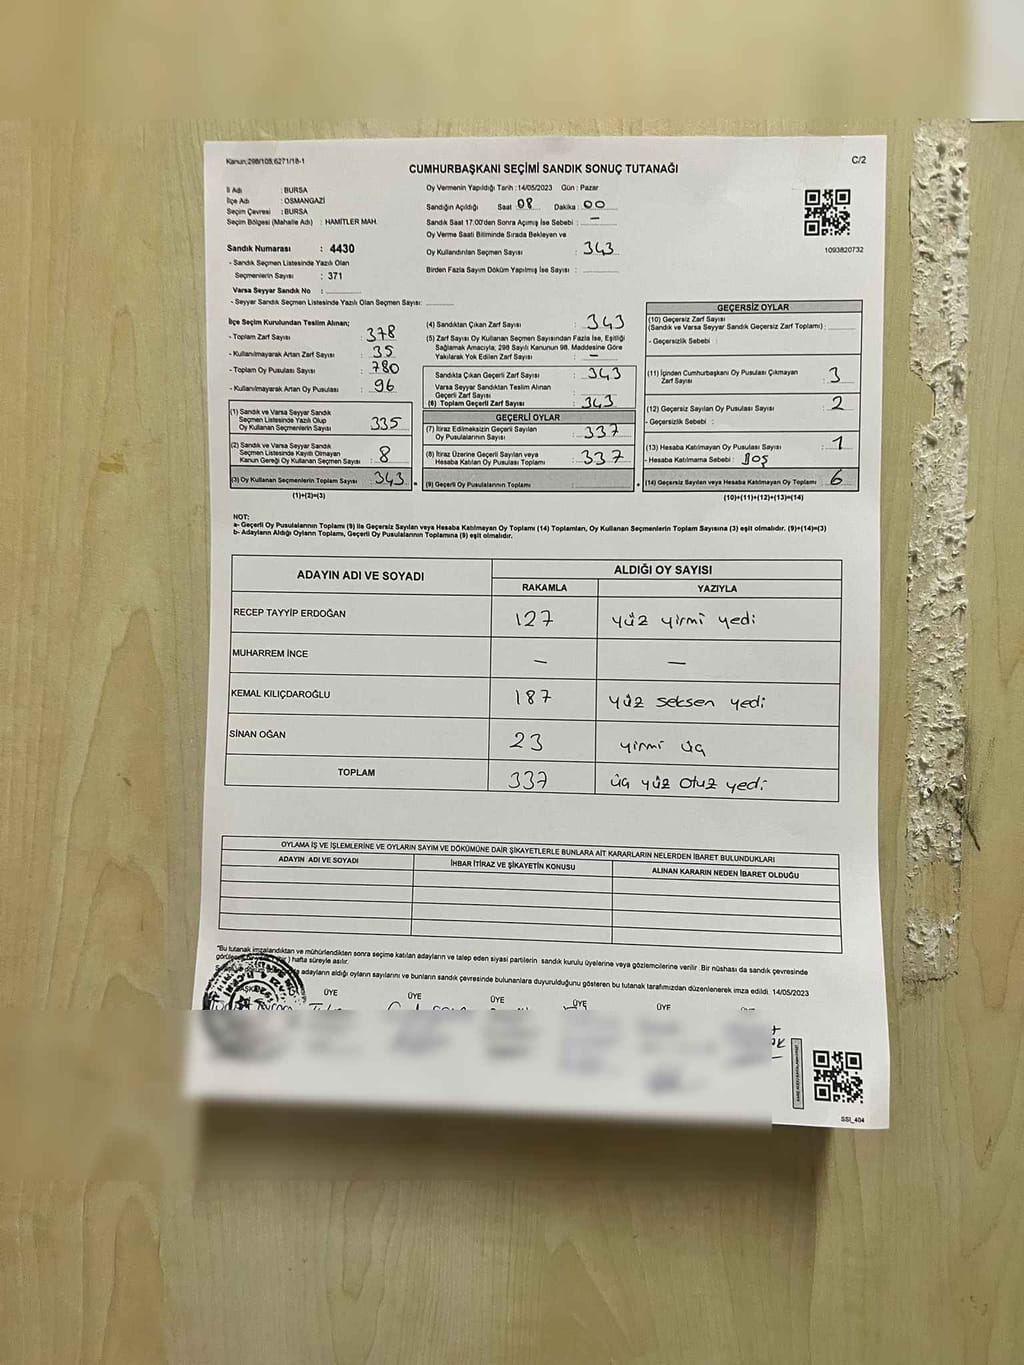 Kanun;298/105;6271/18-1
C/2
CUMHURBAŞKANI SEÇİMİ SANDIK SONUÇ TUTANAĞI
İl Adı : BURSA
İlçe Adı : OSMANGAZİ
Seçim Çevresi : BURSA
Seçim Bölgesi (Mahalle Adı) : HAMİTLER MAH.
Sandık Numarası : 4430
- Sandık Seçmen Listesinde Yazılı Olan
Seçmenlerin Sayısı : 371
Varsa Seyyar Sandık No :
- Seyyar Sandık Seçmen Listesinde Yazılı Olan Seçmen Sayısı:
Oy Vermenin Yapıldığı Tarih : 14/05/2023 Gün : Pazar
Sandığın Açıldığı Saat 08 Dakika : 00
Sandık Saat 17:00'den Sonra Açımış İse Sebebi : –
Oy Verme Saati Bitiminde Sırada Bekleyen ve
Oy Kullandırılan Seçmen Sayısı : 343
Birden Fazla Sayım Döküm Yapılmış İse Sayısı :
1093820732
İlçe Seçim Kurulundan Teslim Alınan;
- Toplam Zarf Sayısı : 378
- Kullanılmayarak Artan Zarf Sayısı : 35
- Toplam Oy Pusulası Sayısı : 780
- Kullanılmayarak Artan Oy Pusulası : 96
(1) Sandık ve Varsa Seyyar Sandık
Seçmen Listesinde Yazılı Olup
Oy Kullanan Seçmenlerin Sayısı : 335
(2) Sandık ve Varsa Seyyar Sandık
Seçmen Listesinde Kayıtlı Olmayan
Kanun Gereği Oy Kullanan Seçmen Sayısı : 8
(3) Oy Kullanan Seçmenlerin Toplam Sayısı : 343
(1)+(2)=(3)
(4) Sandıktan Çıkan Zarf Sayısı : 343
(5) Zarf Sayısı Oy Kullanan Seçmen Sayısından Fazla İse, Eşitliği
Sağlamak Amacıyla; 298 Sayılı Kanunun 98. Maddesine Göre
Yakılarak Yok Edilen Zarf Sayısı : –
Sandıkta Çıkan Geçerli Zarf Sayısı : 343
Varsa Seyyar Sandıktan Teslim Alınan
Geçerli Zarf Sayısı :
(6) Toplam Geçerli Zarf Sayısı : 343
GEÇERLİ OYLAR
(7) İtiraz Edilmeksizin Geçerli Sayılan
Oy Pusulalarının Sayısı : 337
(8) İtiraz Üzerine Geçerli Sayılan veya
Hesaba Katılan Oy Pusulası Toplamı : 337
(9) Geçerli Oy Pusulalarının Toplamı :
GEÇERSİZ OYLAR
(10) Geçersiz Zarf Sayısı
(Sandık ve Varsa Seyyar Sandık Geçersiz Zarf Toplamı) :
- Geçersizlik Sebebi :
(11) İçinden Cumhurbaşkanı Oy Pusulası Çıkmayan
Zarf Sayısı : 3
(12) Geçersiz Sayılan Oy Pusulası Sayısı : 2
- Geçersizlik Sebebi :
(13) Hesaba Katılmayan Oy Pusulası Sayısı : 1
- Hesaba Katılmama Sebebi : Boş
(14) Geçersiz Sayılan veya Hesaba Katılmayan Oy Toplamı : 6
(10)+(11)+(12)+(13)=(14)
NOT:
a- Geçerli Oy Pusulalarının Toplamı (9) ile Geçersiz Sayılan veya Hesaba Katılmayan Oy Toplamı (14) Toplamları, Oy Kullanan Seçmenlerin Toplam Sayısına (3) eşit olmalıdır. (9)+(14)=(3)
b- Adayların Aldığı Oyların Toplamı, Geçerli Oy Pusulalarının Toplamına (9) eşit olmalıdır.
ADAYIN ADI VE SOYADI ALDIĞI OY SAYISI
RAKAMLA YAZIYLA
RECEP TAYYİP ERDOĞAN 127 yüz yirmi yedi
MUHARREM İNCE – –
KEMAL KILIÇDAROĞLU 187 yüz seksen yedi
SİNAN OĞAN 23 yirmi üç
TOPLAM 337 üç yüz otuz yedi
OYLAMA İŞ VE İŞLEMLERİNE VE OYLARIN SAYIM VE DÖKÜMÜNE DAİR ŞİKAYETLERLE BUNLARA AİT KARARLARIN NELERDEN İBARET BULUNDUKLARI
ADAYIN ADI VE SOYADI İHBAR İTİRAZ VE ŞİKAYETİN KONUSU ALINAN KARARIN NEDEN İBARET OLDUĞU
"Bu tutanak imzalandıktan ve mühürlendikten sonra seçime katılan adayların ve talep eden siyasi partilerin sandık kurulu üyelerine veya gözlemcilerine verilir. Bir nüshası da sandık çevresinde
hafta süreyle asılır.
adayların aldığı oyların sayılarını ve bunların sandık çevresinde bulunanlara duyurulduğunu gösteren bu tutanak tarafımızdan düzenlenerek imza edildi. 14/05/2023
ÜYE ÜYE ÜYE ÜYE ÜYE
SSI_404